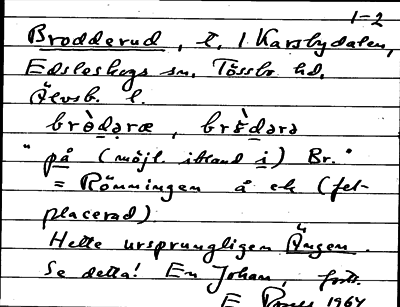 1-2
Brodderud, t. 1 Karsbydalen,
Edsleskogs sn. Tössbo hd.
Älvsb. l.
brò̤dəræ, brò̤dərə
"på (möjl. ibland i) Br."
= Rönningen å ek (fel-
placerad)
Hette ursprungligen Ängen.
Se detta! En Johan,
E. 1964